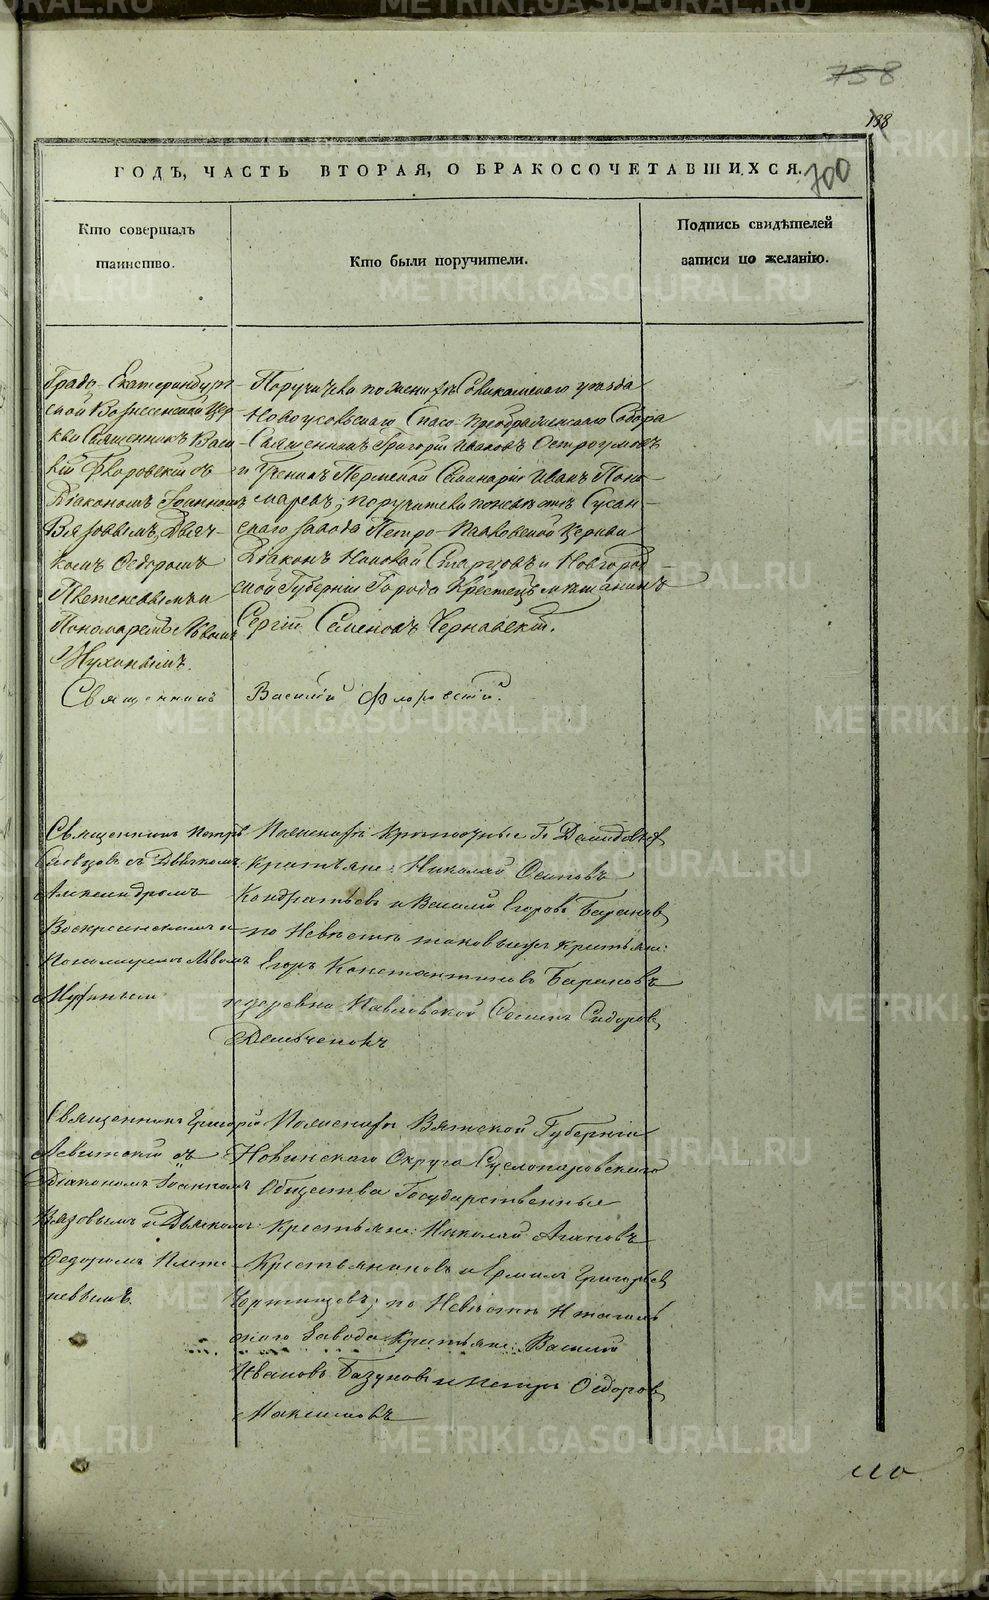 758
188
ГОДЪ, ЧАСТЬ ВТОРАЯ, О БРАКОСОЧЕТАВШИХСЯ.
700
Кто совершалъ
таинство.
Кто были поручители.
Подпись свидѣтелей
записи по желанію.
Градо-Екатеринбург-
ской Вознесенской Цер-
кви Священникъ Васи-
лій Флоровскій съ
Діакономъ Іоанномъ
Вязовымъ, Дьяч-
комъ Ѳедоромъ
Плетеневымъ и
Пономаремъ Львомъ
Мухинымъ.
Поручители по женихѣ Соликамскаго уѣзда
Новоусольскаго Спасо-Преображенскаго Собора
Священникъ Григорій Ивановъ Остроумовъ
и Ученикъ Пермской Семинаріи Иванъ Поно-
маревъ; поручители по невѣстѣ Сусан-
скаго завода Петро-Павловской Церкви
Діаконъ Николай Старцовъ и Новгород-
ской Губерніи Города Крестецъ мѣщанинъ
Сергій Семеновъ Чернавскій.
Священникъ Василій Флоровскій.
Священникъ Петръ
съ Дьячкомъ
Александромъ
Воскресенскимъ и
Пономаремъ Львомъ
По женихѣ Г. Демидовыхъ
крестьяне: Николай Осиповъ
Кондратьевъ и Василій Егоровъ Барановъ,
по Невѣстѣ таковые же крестьяне:
Егоръ Константиновъ Барановъ
и деревни Павловской Сидоровъ
Священникъ Григорій
Левитскій съ
Діакономъ Іоанномъ
Вязовымъ и Дьячкомъ
Федоромъ Плете-
невымъ.
По женихѣ Вятской Губерніи
Округа Суслопаровскаго
Общества Государственные
Крестьяне: Николай Агаповъ
Крестьяниновъ и Ермилъ Григорьевъ
по Невѣстѣ Нтагиль-
скаго Завода Крестьяне: Василій
Ивановъ Базуновъ и Петръ Ѳедоровъ
Максимовъ
METRIKI.GASO-URAL.RU